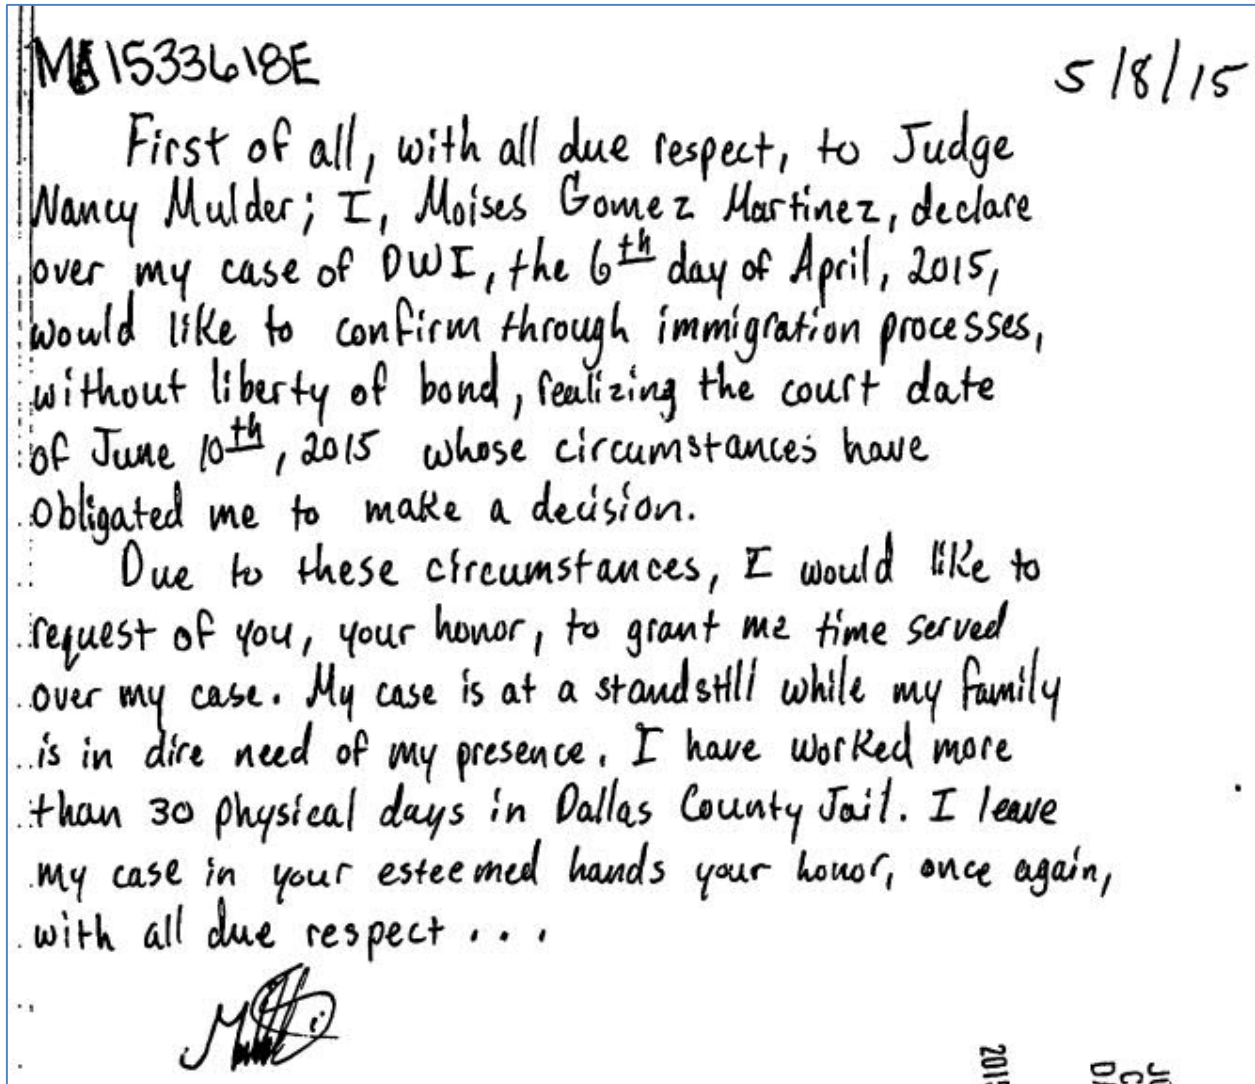 MA1533618E 5/8/15
First of all, with all due respect, to Judge
Nancy Mulder; I, Moises Gomez Martinez, declare
over my case of DWI, the 6th day of April, 2015,
would like to confirm through immigration processes,
without liberty of bond, realizing the court date
of June 10th, 2015 whose circumstances have
obligated me to make a decision.
Due to these circumstances, I would like to
request of you, your honor, to grant me time served
over my case. My case is at a standstill while my family
is in dire need of my presence. I have worked more
than 30 physical days in Dallas County Jail. I leave
my case in your esteemed hands your honor, once again,
with all due respect...